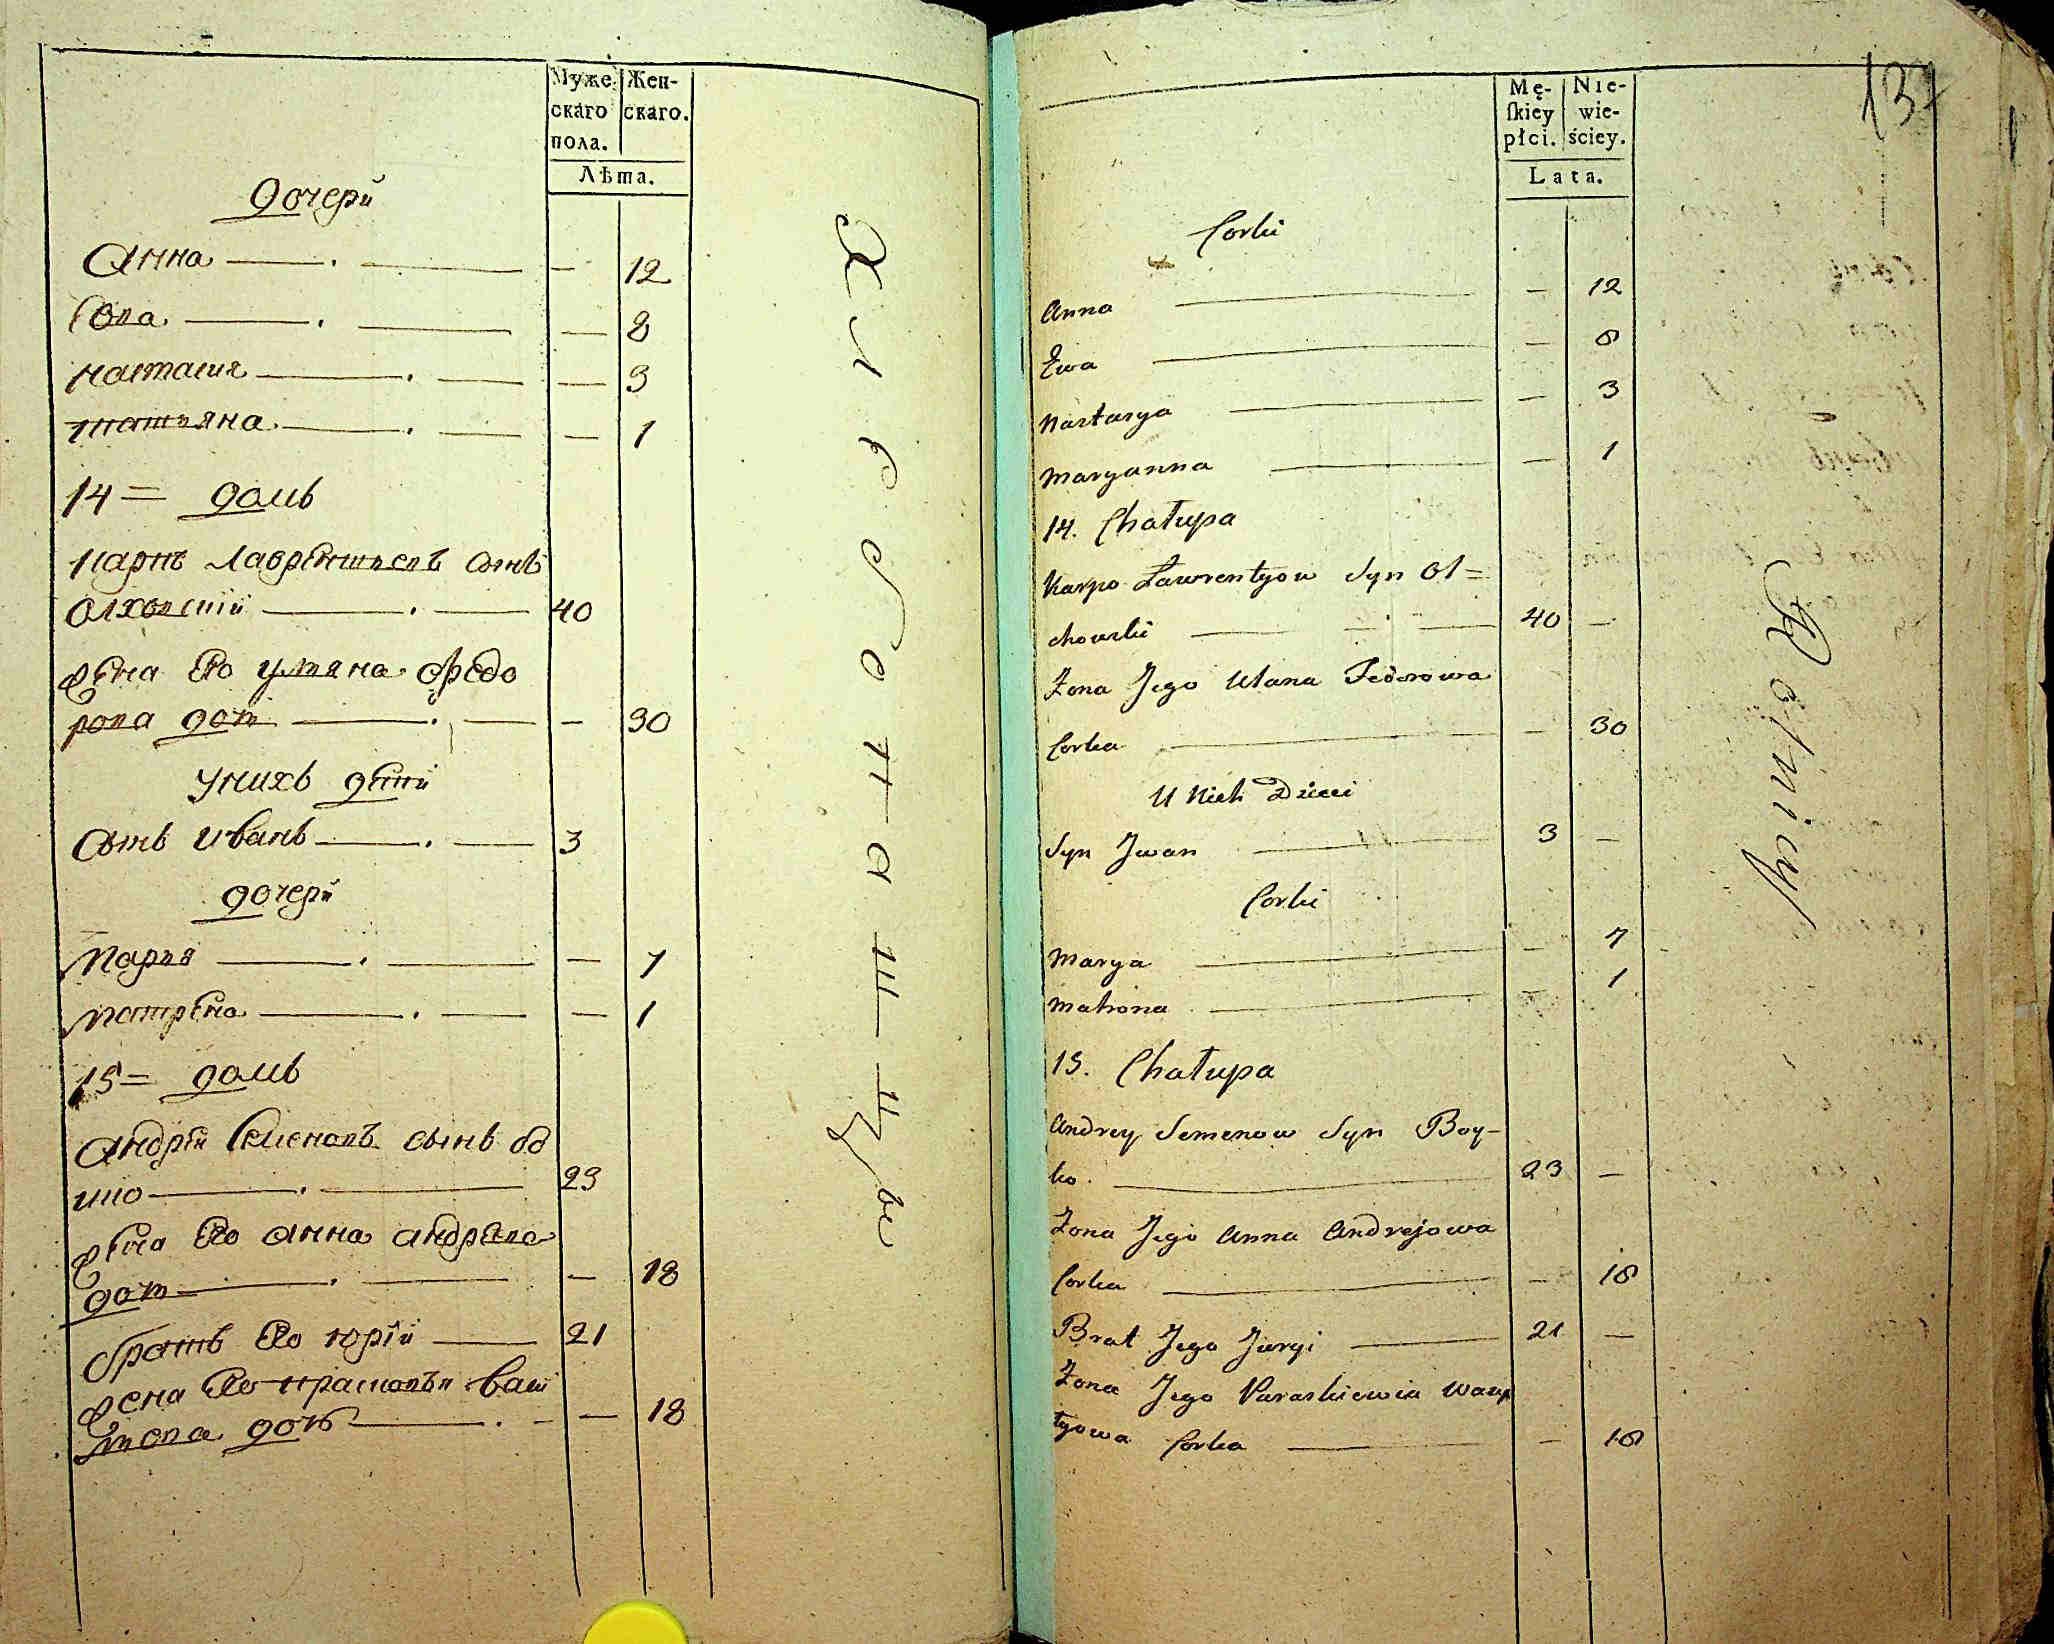 Муже- Жен-
скаго скаго.
пола.
Лѣта.
дочери
Анна — 12
Ева — 8
настасия — 3
татьяна — 1
14 = домъ
Карпъ Лаврентиевъ сынъ
Олховский 40
жена Его уляна Федо
рова доч — 30
У нихъ дети
Сынъ Иванъ 3
дочери
Марья — 7
Матрена — 1
15 = домъ
Андрей Семеновъ сынъ
23
жена Его Анна андреева
доч — 18
братъ Его юрий 21
жена Его
доч — 18
Хлебопашцы
137
Mę- Nie-
ſkiey wie-
płci. ściey.
Lata.
Corki
Anna — 12
Ewa — 8
Nastasya — 3
Maryanna — 1
14. Chałupa
Karpo Ławrentyow Syn Ol=
chowski 40 —
Zona Jego Ulana Fedorowa
Corka — 30
U Nich Dzieci
Syn Jwan 3 —
Corki
Marya — 7
Matrona — 1
15. Chałupa
Andrey Semenow Syn Boy-
ko. 23 —
Zona Jego Anna Andrejowa
Corka — 18
Brat Jego Jurgi 21 —
Zona Jego Paraskiewia
Corka — 18
Rolnicy